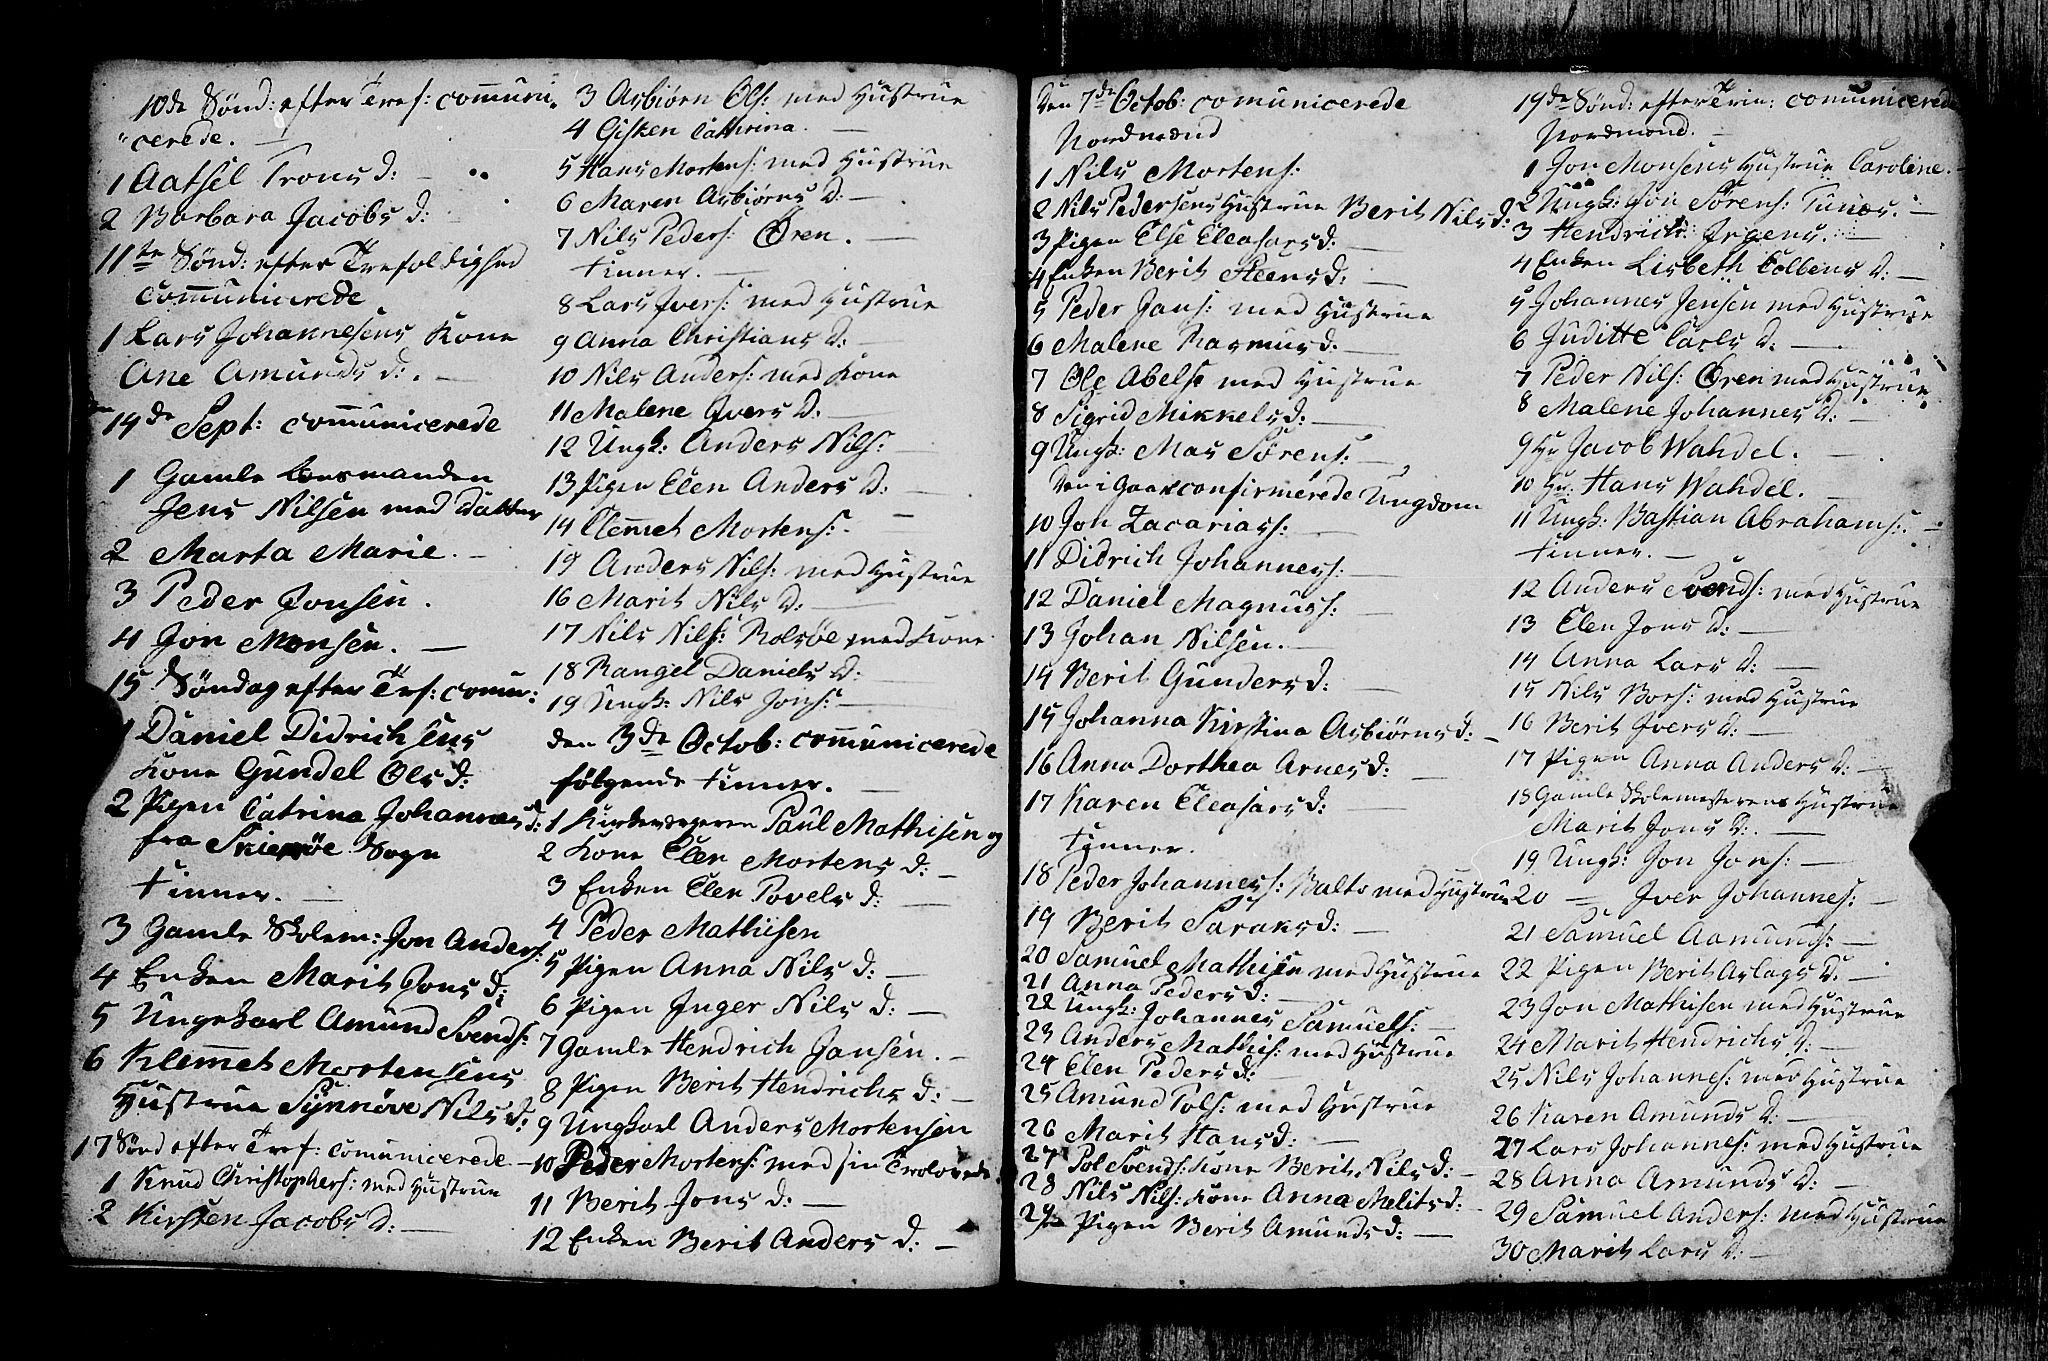 10de Sønd: efter Tref: com̄uni-
"cerede. —
1 Aatsel Trons d: —
2 Barbara Jacobs d:
11te Sønd: efter Trefoldighed
Com̄unicerede
1 Lars Johannesens Kone
Ane Amunds d:. —
14de Sept: com̄unicerede
1 Gamle Lensmanden
Jens Nilsen med Datter
2 Marta Marie. —
3 Peder Jonsen.
4 Jon Monsen. —
15 Søndag efter Tref: comu:
1 Daniel Didrichsens
Kone Gundel Ols d:
2 Pigen Catrina Johannes d:
fra Skiervøe Sogn
Finner. —
3 Gamle Skolem: Jon Anders:
4 Enken Marit Jons d:
5 Ungekarl Amund Svends:
6 Klem̄et Mortensens
Hustrue Synnøve Nils d:
17 Sønd efter Tref: comunicerede —
1 Knud Christophers: med Hustrue
2 Kirsten Jacobs d: —
3 Asbiørn Ols: med Hustrue
4 Gisken Cathrina. —
5 Hans Mortens: med Hustrue
6 Maren Asbiørns d: —
7 Nils Peders: Øren. —
Finner. —
8 Lars Ivers: med Hustrue
9 Anna Christians d: —
10 Nils Anders: med Kone
11 Malene Ivers d: —
12 Ungk: Anders Nils: —
13 Pigen Elen Anders d: —
14 Clem̄et Mortens: —
15 Anders Nils: med Hustrue
16 Marit Nils d: —
17 Nils Nils: Rolsøe med Kone
18 Rangel Daniels d: —
19 Ungk: Nils Jons: —
den 3de Octob: com̄unicerede
følgende Finner. —
1 Kirkeværgeren Paul Mathisen og
2 Kone Elen Mortens d: —
3 Enken Elen Povels d: —
4 Peder Mathisen
5 Pigen Anna Nils d: —
6 Pigen Inger Nils d: —
7 Gamle Hendrich Jansen. —
8 Pigen Berit Hendrichs d: —
9 Ungkarl Anders Mortensen
10 Peder Mortens: med sin Trolovede.
11 Berit Jons d: —
12 Enken Berit Anders d: —
Den 7de Octob: comunicerede
Nordmænd
1 Nils Mortens:
2 Nils Pedersens Hustrue Berit Nils d:
3 Pigen Else Eleasars d: —
4 Enken Berit Steens d: —
5 Peder Jans: med Hustrue
6 Malene Rasmus d: —
7 Ole Abels: med Hustrue
8 Sigrid Mikkels d: —
9 Ungk: Mas Sørens: —
Den i Gaar confirmerede Ungdom
10 Jon Zacarias: —
11 Didrich Johannes: —
12 Daniel Magnus: —
13 Johan Nilsen. —
14 Berit Gunders d: —
15 Johanna Kirstina Asbiørns d: —
16 Anna Dorthea Arnes d: —
17 Karen Eleasars d: —
Finner.
18 Peder Johannes: Balto med Hustrue
19 Berit Saraks d: —
20 Samuel Mathisen med Hustrue
21 Anna Peders d: —
22 Ungk: Johannes Samuels: —
23 Anders Mathis: med Hustrue
24 Elen Peders d: —
25 Amund Pols: med Hustrue
26 Marit Hans d: —
27 Pol Svends: Kone Berit Nils d: —
28 Nils Nils: Kone Anna Melits d: —
29 Pigen Berit Amunds d: —
19de Sønd: efter Trin: comunicerede
Nordmænd. —
1 Jon Monsens Hustrue Caroline. —
2 Ungk: Jon Sørens: —
3 Hendrich: Irgens. —
4 Enken Lisbeth Colbens d: —
5 Johannes Jensen med Hustrue
6 Juditte Carls d. —
7 Peder Nils: Øren med Hustrue
8 Malene Johannes d: —
9 Hr Jacob Wahdel. —
10 Hr: Hans Wahdel. —
11 Ungk: Bastian Abrahams: —
Finner. —
12 Anders Svends: med Hustrue
13 Elen Jons d: —
14 Anna Lars d: —
15 Nils Bors: med Hustrue
16 Berit Ivers d: —
17 Pigen Anna Anders d: —
18 Gamle Skolemesterens Hustrue
Marit Jons d: —
19 Ungk: Jon Jons: —
20 — Iver Johannes: —
21 Samuel Aamunds: —
22 Pigen Berit Aslags d: —
23 Jon Mathisen med Hustrue
24 Marit Hendrichs d: —
25 Nils Johannes: med Hustrue
26 Karen Amunds d: —
27 Lars Johannes: med Hustrue
28 Anna Amunds d: —
29 Samuel Anders: med Hustrue
30 Marit Lars d: —